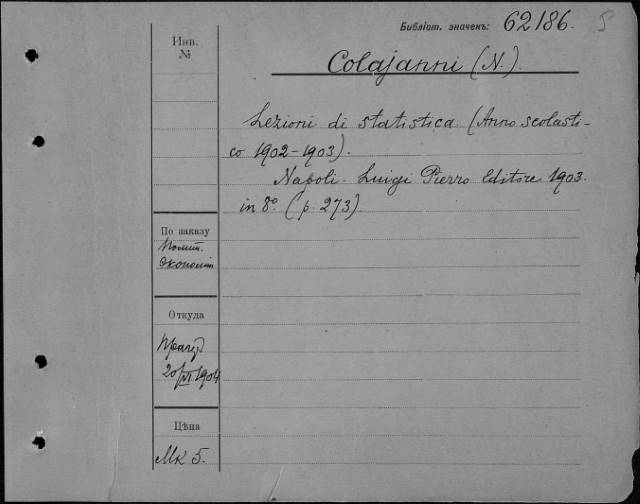 Библіот. значекъ: 62186. 5
Инв.
№
Colajanni (N.).
Lezioni di statistica (Anno scolasti-
co 1902-1903).
Napoli. Luigi Pierro Editore 1903.
in 8º. (p. 273)
По заказу
Полит.
Экономіи
Откуда
20/VI 1904
Цѣна
Мк 5.